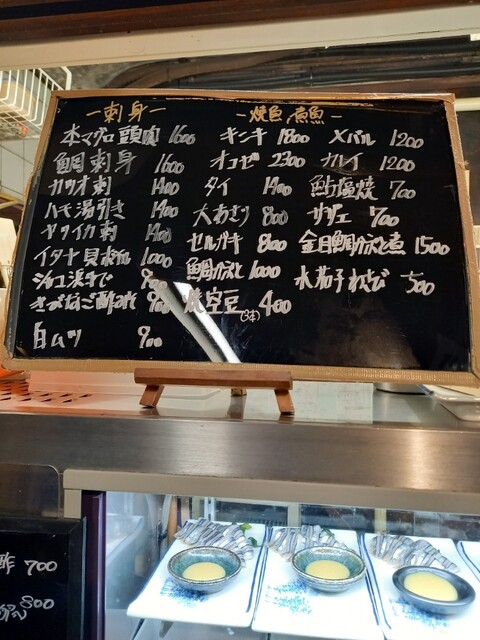 ー刺身ー
本マグロ頭肉 1600
鯛刺身 1600
カツオ刺 1400
ハモ湯引き 1400
ヤリイカ刺 1400
イタヤ貝 1000
900
900
白ムツ 900
ー焼魚 煮魚ー
キンキ 1800
オコゼ 2300
タイ 1400
大あさり 800
セルガキ 800
鯛かぶと 1000
焼空豆(3本) 400
メバル 1200
カレイ 1200
鮎塩焼 700
サザエ 700
金目鯛かぶと煮 1500
水茄子わさび 500
酢 700
800